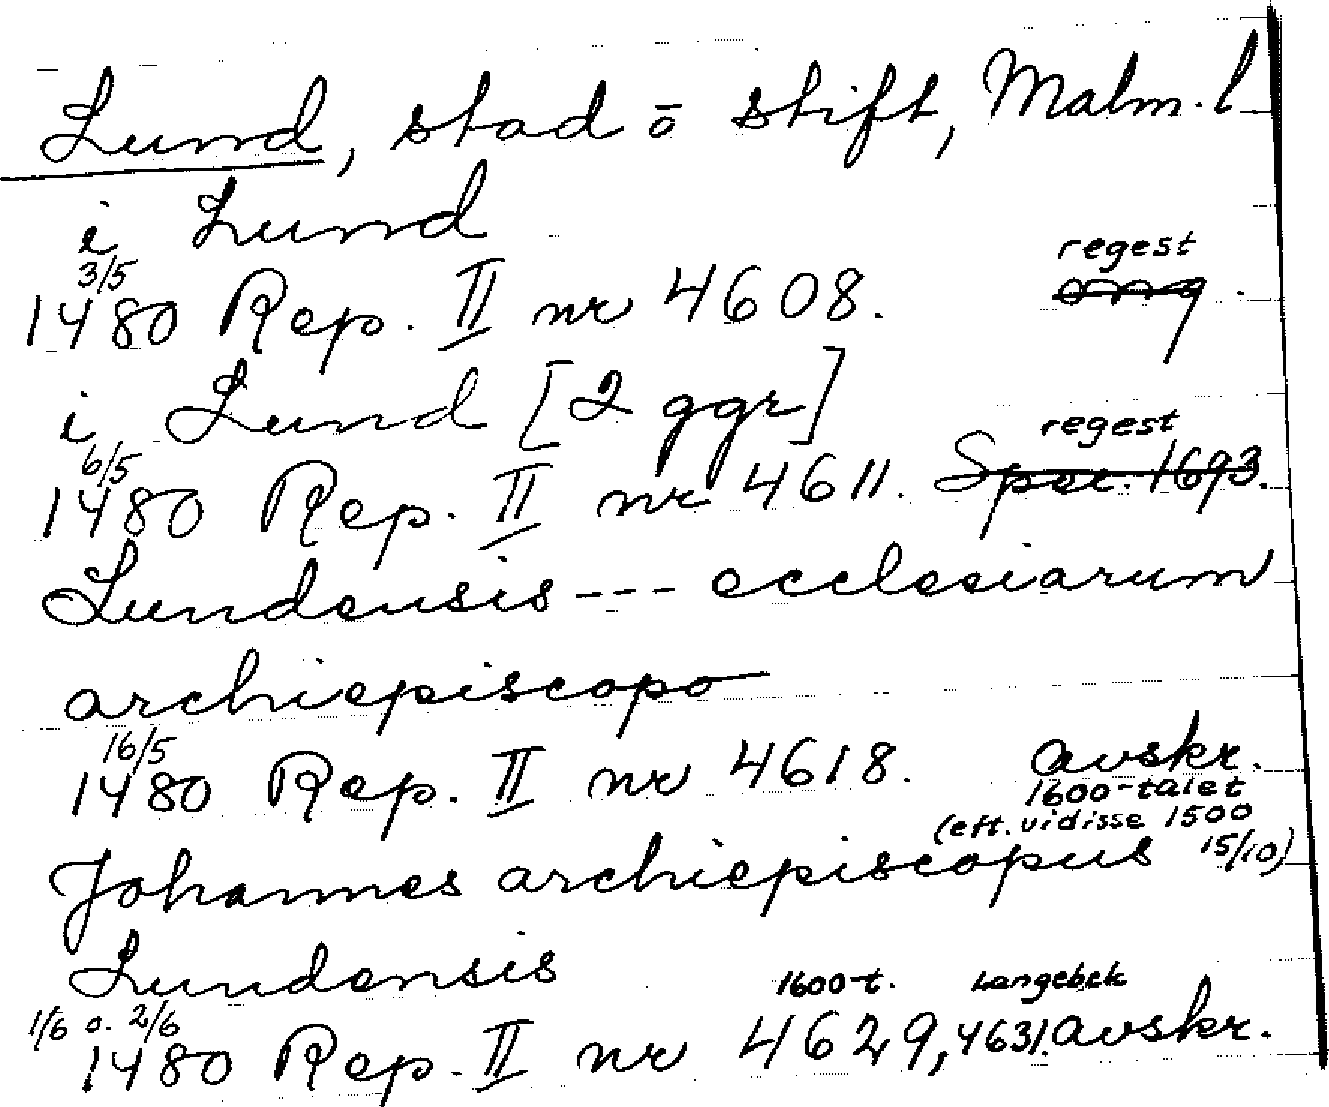 Lund, stad o stift, Malm. l
i Lund
3/5 regest
1480 Rep. II nr 4608. orig.
i Lund [2 ggr]
6/5 regest
1480 Rep. II nr 4611. Spec. 1693.
Lundensis --- ecclesiarum
archiepiscopo
16/5
1480 Rep. II nr 4618. avskr.
1600-talet
(eft. vidisse 1500
15/10)
Johannes archiepiscopus
Lundensis
1/6 o. 2/6 1600-t. Langebek
1480 Rep. II nr 4629, 4631. avskr.